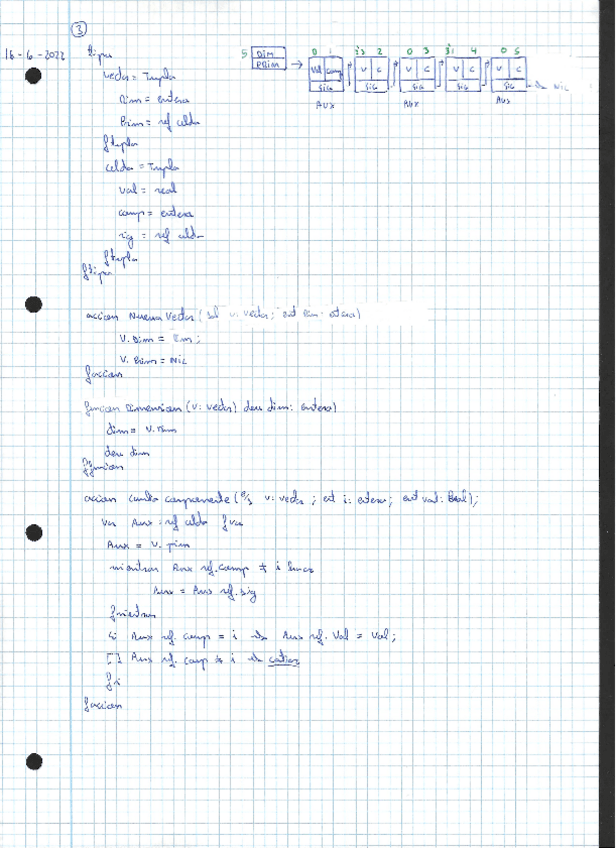 3
16-6-2022
tipos
vector = Tupla
Dim = entero
Prim = ref celda
ftupla
celda = Tupla
val = real
comp = entero
sig = ref celda
ftupla
ftipos
5 Dim
Prim
0 1 i3 2 0 3 i1 4 0 5
Val comp V C V C V C V C
sig sig sig sig sig Nil
Aux Aux Aux
accion Nuevo Vector (sal v: vector; ent Dim: entero)
V. Dim = Dim;
V. Prim = Nil
faccion
funcion Dimension (v: vector) dev dim: entero)
dim = V. Dim
dev dim
ffuncion
accion componente (e/s v: vector; ent i: entero; ent val: Real);
var Aux: ref celda fvar
Aux = V. Prim
mientras Aux ref. comp ≠ i hacer
Aux = Aux ref. sig
fmientras
si Aux ref. comp = i Aux ref. Val = Val;
[] Aux ref. comp ≠ i
fsi
faccion